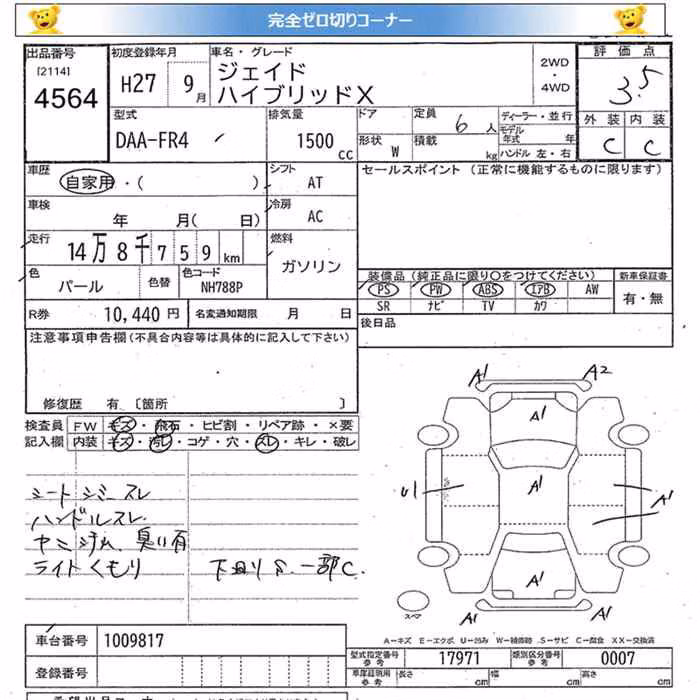 完全ゼロ切りコーナー
出品番号
[2114]
4564
初度登録年月
H27 9月
車名・グレード
ジェイド
ハイブリッドX
2WD
・
4WD
評価点
3.5
外装 内装
C C
型式
DAA-FR4
排気量
1500
cc
ドア
定員 6 人
形状 W
積載 kg
ディーラー・並行
モデル年式 年
ハンドル 左・右
車歴
自家用・( )
シフト
AT
セールスポイント (正常に機能するものに限ります)
車検
年 月( 日)
冷房
AC
走行
14万8千759km
燃料
ガソリン
色
パール
色替
色コード
NH788P
装備品(純正品に限り〇をつけてください)
新車保証書
PS PW ABS IアB AW
SR ナビ TV カワ
有・無
R券 10,440 円
名変通知期限 月 日
後日品
注意事項申告欄(不具合内容等は具体的に記入して下さい)
修復歴 有 〔箇所 〕
検査員
記入欄
FW キズ・飛石・ヒビ割・リペア跡・×要
内装 キズ・汚レ・コゲ・穴・スレ・キレ・破レ
シート シミ スレ
ハンドルスレ
臭い有
ライトくもり
下回りS.一部C.
A1 A2
A1
U1 A1 A1
A1
A1 A1
スペア
A-キズ E-エクボ U-凹み W-補修跡 S-サビ C-腐食 XX-交換済
車台番号 1009817
登録番号
型式指定番号
参考
17971
類別区分番号
参考
0007
車庫証明用
参考
長さ cm
幅 cm
高さ cm